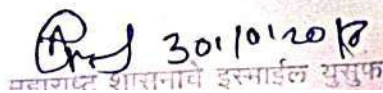 30/10/2018
महाराष्ट्र शासनाचे इस्माईल युसुफ